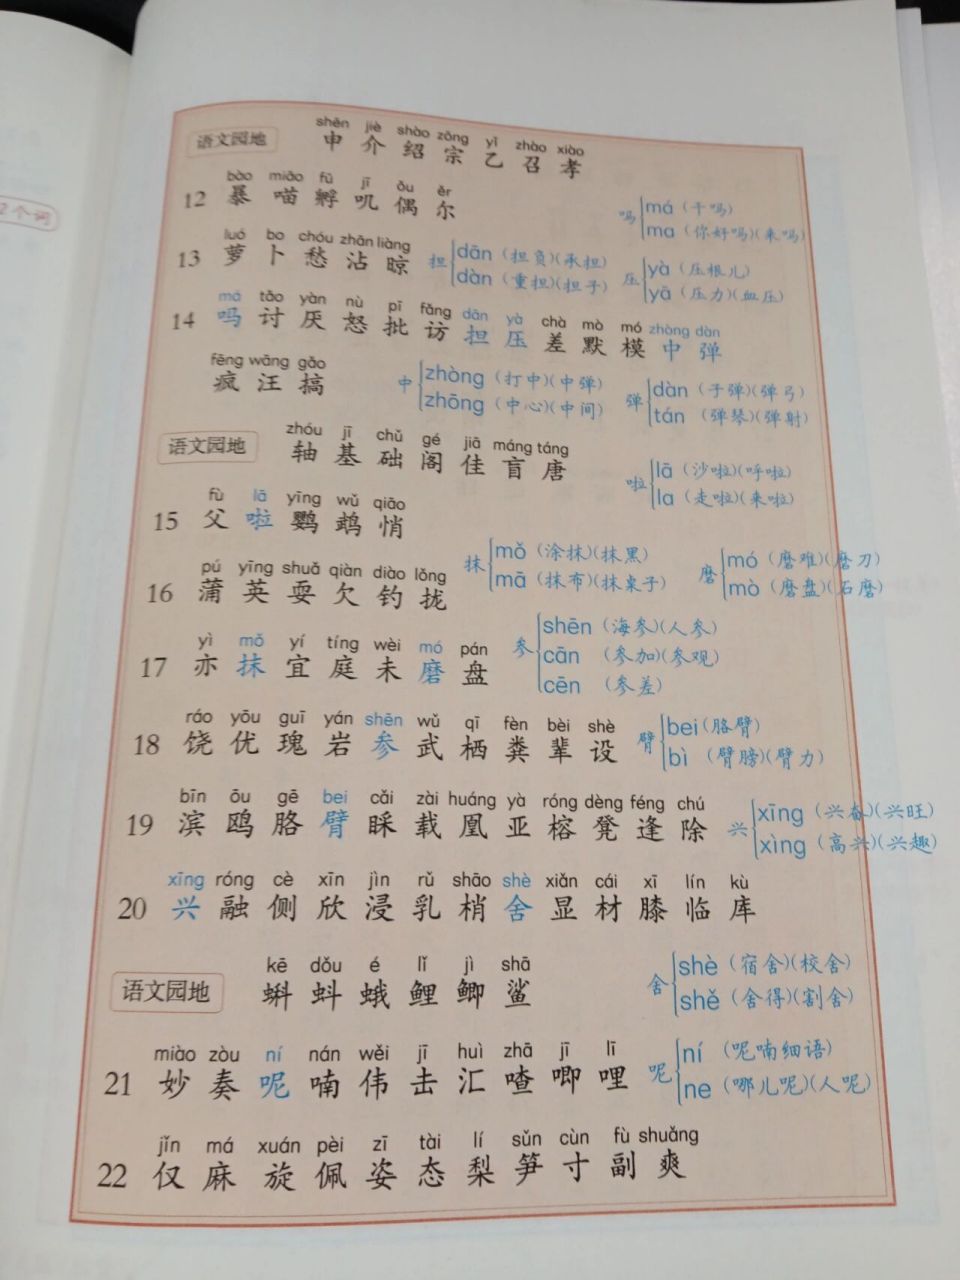 2个词
shēn jiè shào zōng yǐ zhào xiào
语文园地 申 介 绍 宗 乙 召 孝
bào miāo fū jī ǒu ěr
12 暴 喵 孵 叽 偶 尔
吗 má (干吗)
ma (你好吗)(来吗)
luó bo chóu zhān liàng
13 萝 卜 愁 沾 晾
担 dān (担负)(承担)
dàn (重担)(担子)
压 yà (压根儿)
yā (压力)(血压)
má tǎo yàn nù pī fǎng dān yà chà mò mó zhòng dàn
14 吗 讨 厌 怒 批 访 担 压 差 默 模 中 弹
fēng wāng gǎo
疯 汪 搞
中 zhòng (打中)(中弹)
zhōng (中心)(中间)
弹 dàn (子弹)(弹弓)
tán (弹琴)(弹射)
zhóu jī chǔ gé jiā máng táng
语文园地 轴 基 础 阁 佳 盲 唐
啦 lā (沙啦)(呼啦)
la (走啦)(来啦)
fù lā yīng wǔ qiāo
15 父 啦 鹦 鹉 悄
抹 mǒ (涂抹)(抹黑)
mā (抹布)(抹桌子)
磨 mó (磨难)(磨刀)
mò (磨盘)(石磨)
pú yīng shuǎ qiàn diào lǒng
16 蒲 英 耍 欠 钓 拢
yì mǒ yí tíng wèi mó pán
17 亦 抹 宜 庭 未 磨 盘
参 shēn (海参)(人参)
cān (参加)(参观)
cēn (参差)
ráo yōu guī yán shēn wǔ qī fèn bèi shè
18 饶 优 瑰 岩 参 武 栖 粪 辈 设
臂 bei (胳臂)
bì (臂膀)(臂力)
bīn ōu gē bei cǎi zài huáng yà róng dèng féng chú
19 滨 鸥 胳 臂 睬 载 凰 亚 榕 凳 逢 除
兴 xīng (兴奋)(兴旺)
xìng (高兴)(兴趣)
xīng róng cè xīn jìn rǔ shāo shè xiǎn cái xī lín kù
20 兴 融 侧 欣 浸 乳 梢 舍 显 材 膝 临 库
kē dǒu é lǐ jì shā
语文园地 蝌 蚪 蛾 鲤 鲫 鲨
舍 shè (宿舍)(校舍)
shě (舍得)(割舍)
miào zòu ní nán wěi jī huì zhā jī lī
21 妙 奏 呢 喃 伟 击 汇 喳 唧 哩
呢 ní (呢喃细语)
ne (哪儿呢)(人呢)
jǐn má xuán pèi zī tài lí sǔn cùn fù shuǎng
22 仅 麻 旋 佩 姿 态 梨 笋 寸 副 爽